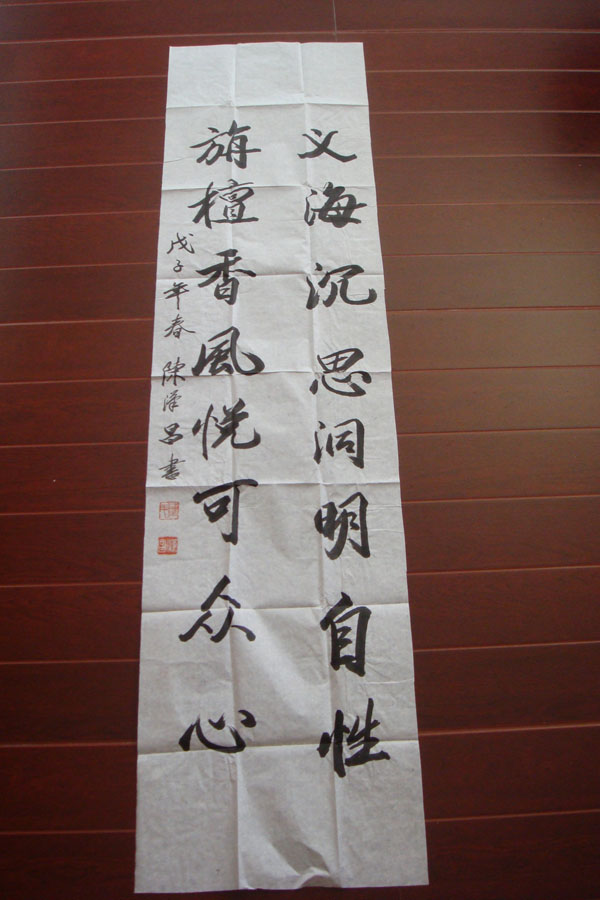 义海沉思洞明自性
旃檀香風悦可众心
戊子年春 陳泽昌書